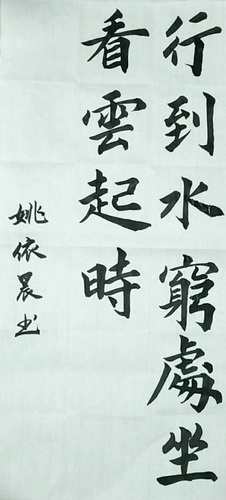 行到水窮處坐
看雲起時
姚依晨书